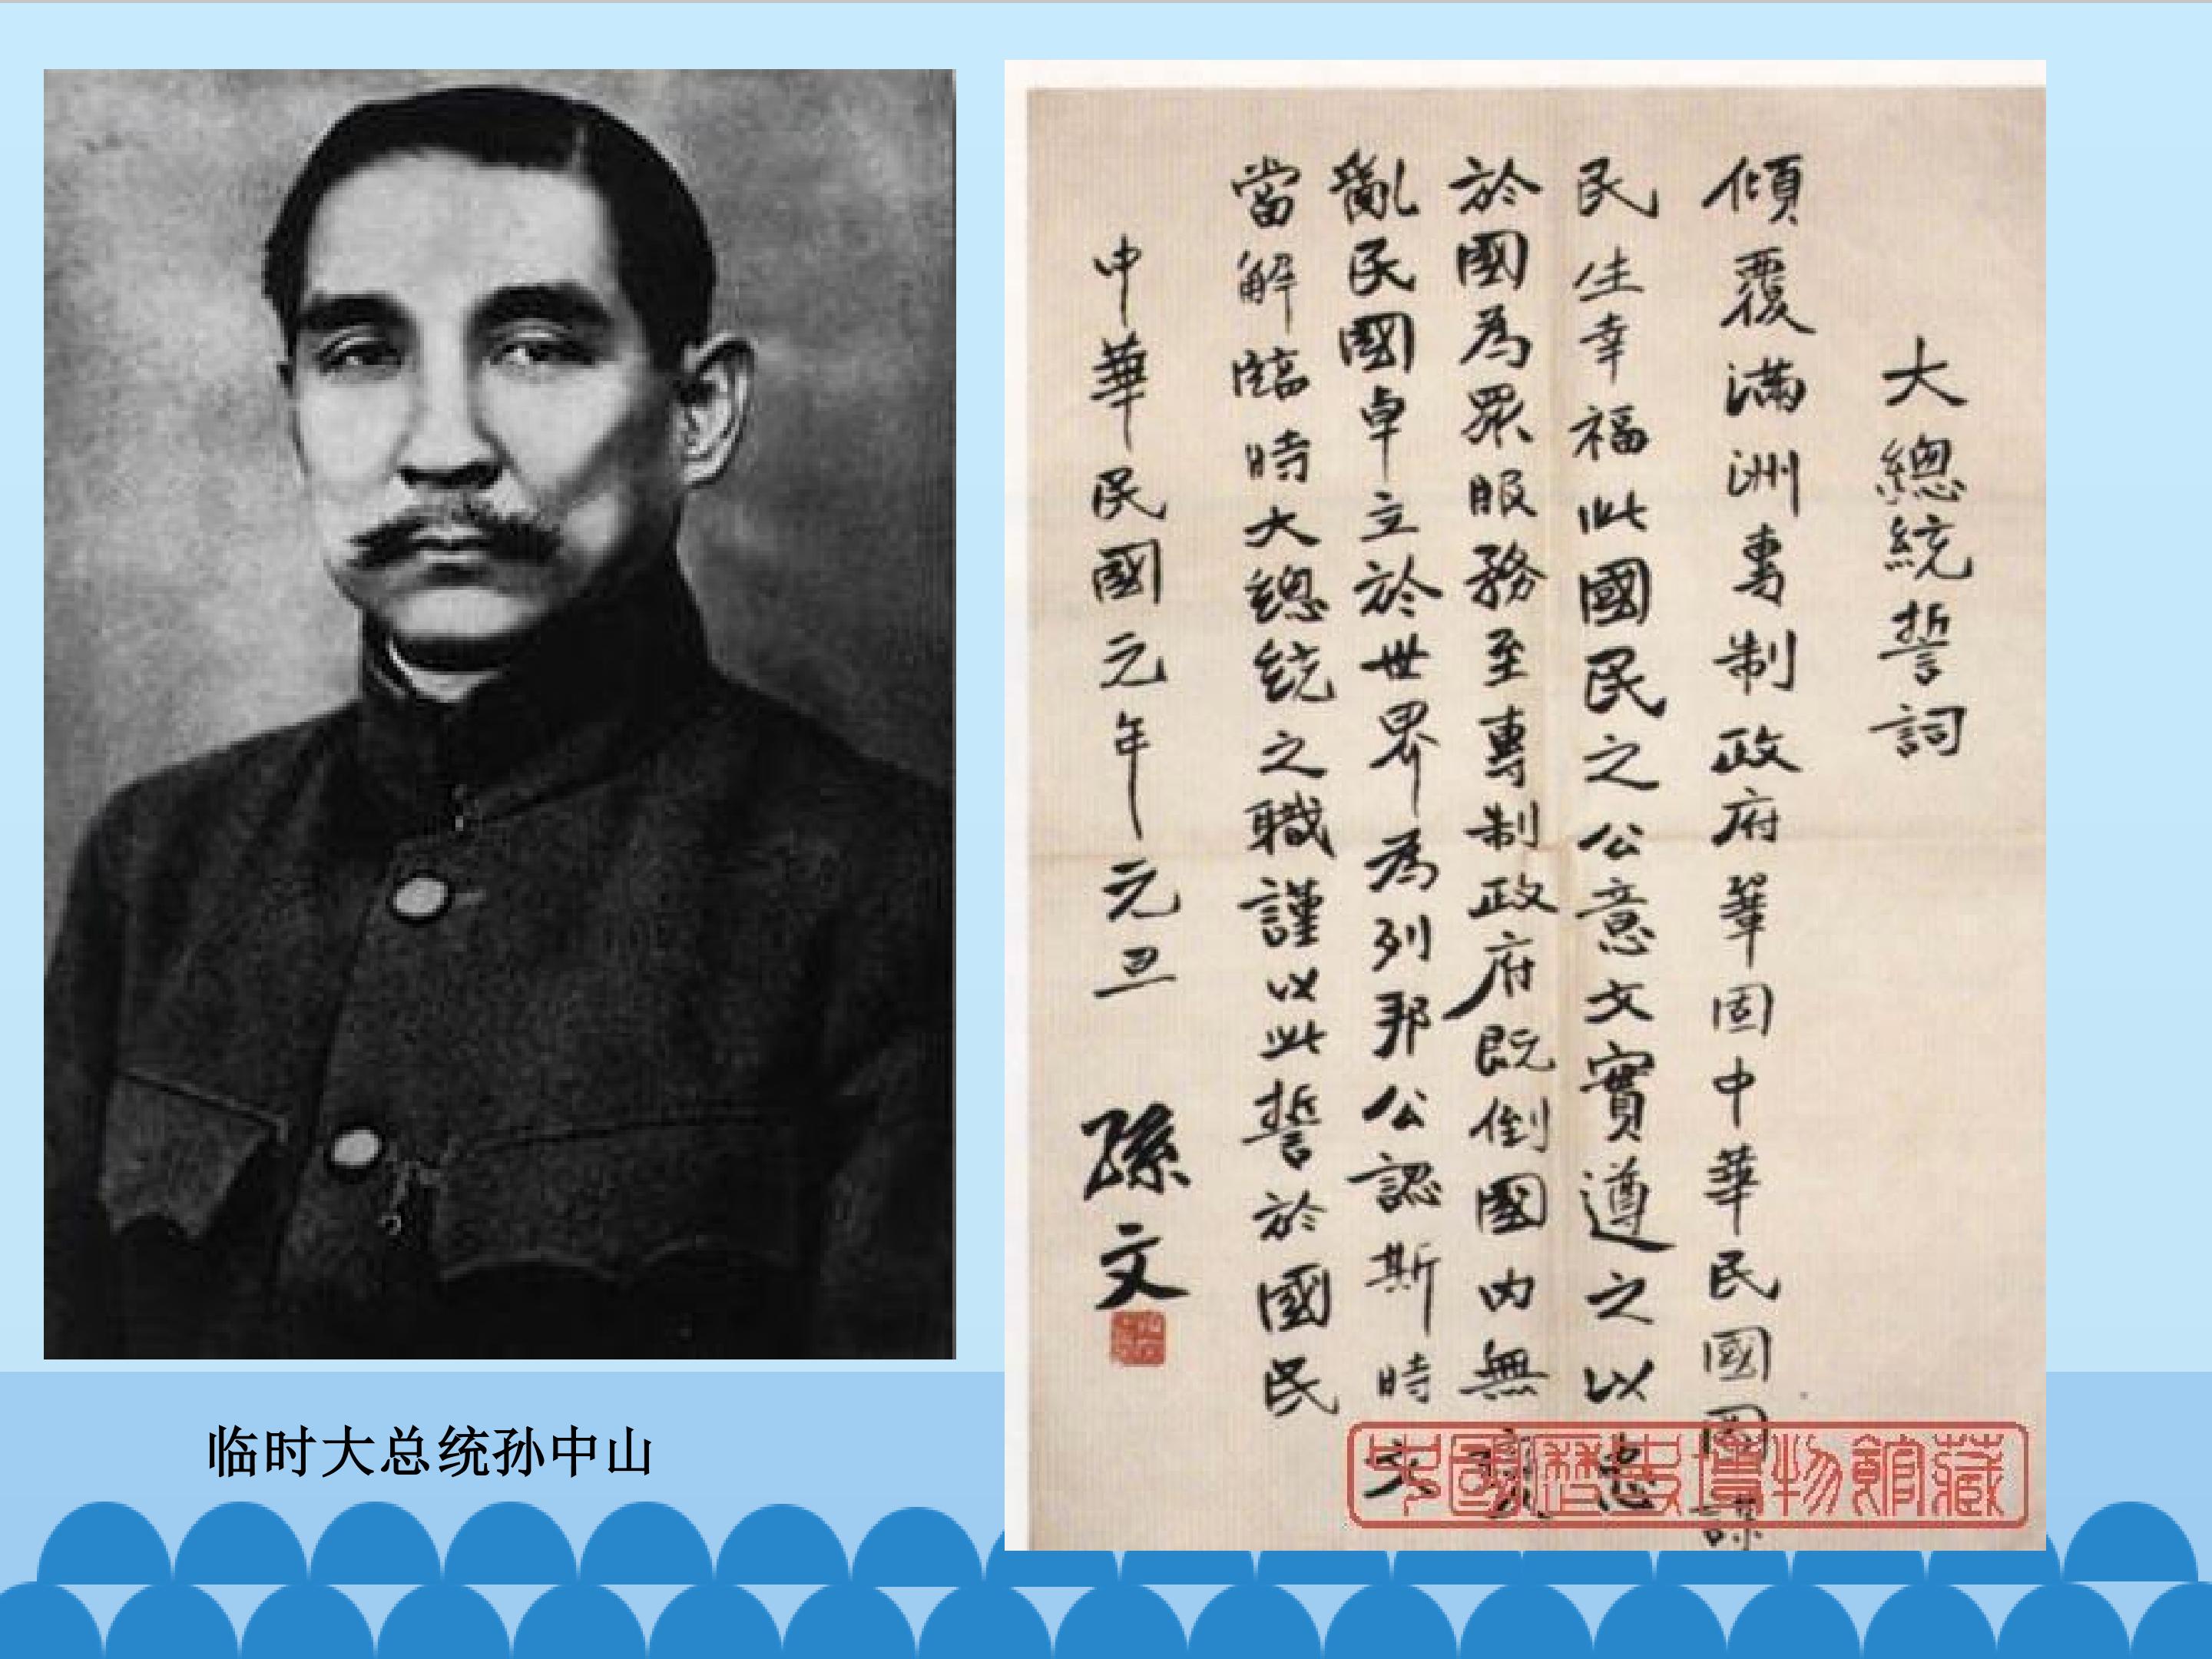 大總統誓詞
傾覆滿洲專制政府鞏固中華民國圖謀
民生幸福此國民之公意文實遵之以忠
於國為眾服務至專制政府既倒國內無變
亂民國卓立於世界為列邦公認斯時文
當解臨時大總統之職謹以此誓於國民
中華民國元年元旦 孫文
中國歷史博物館藏
临时大总统孙中山